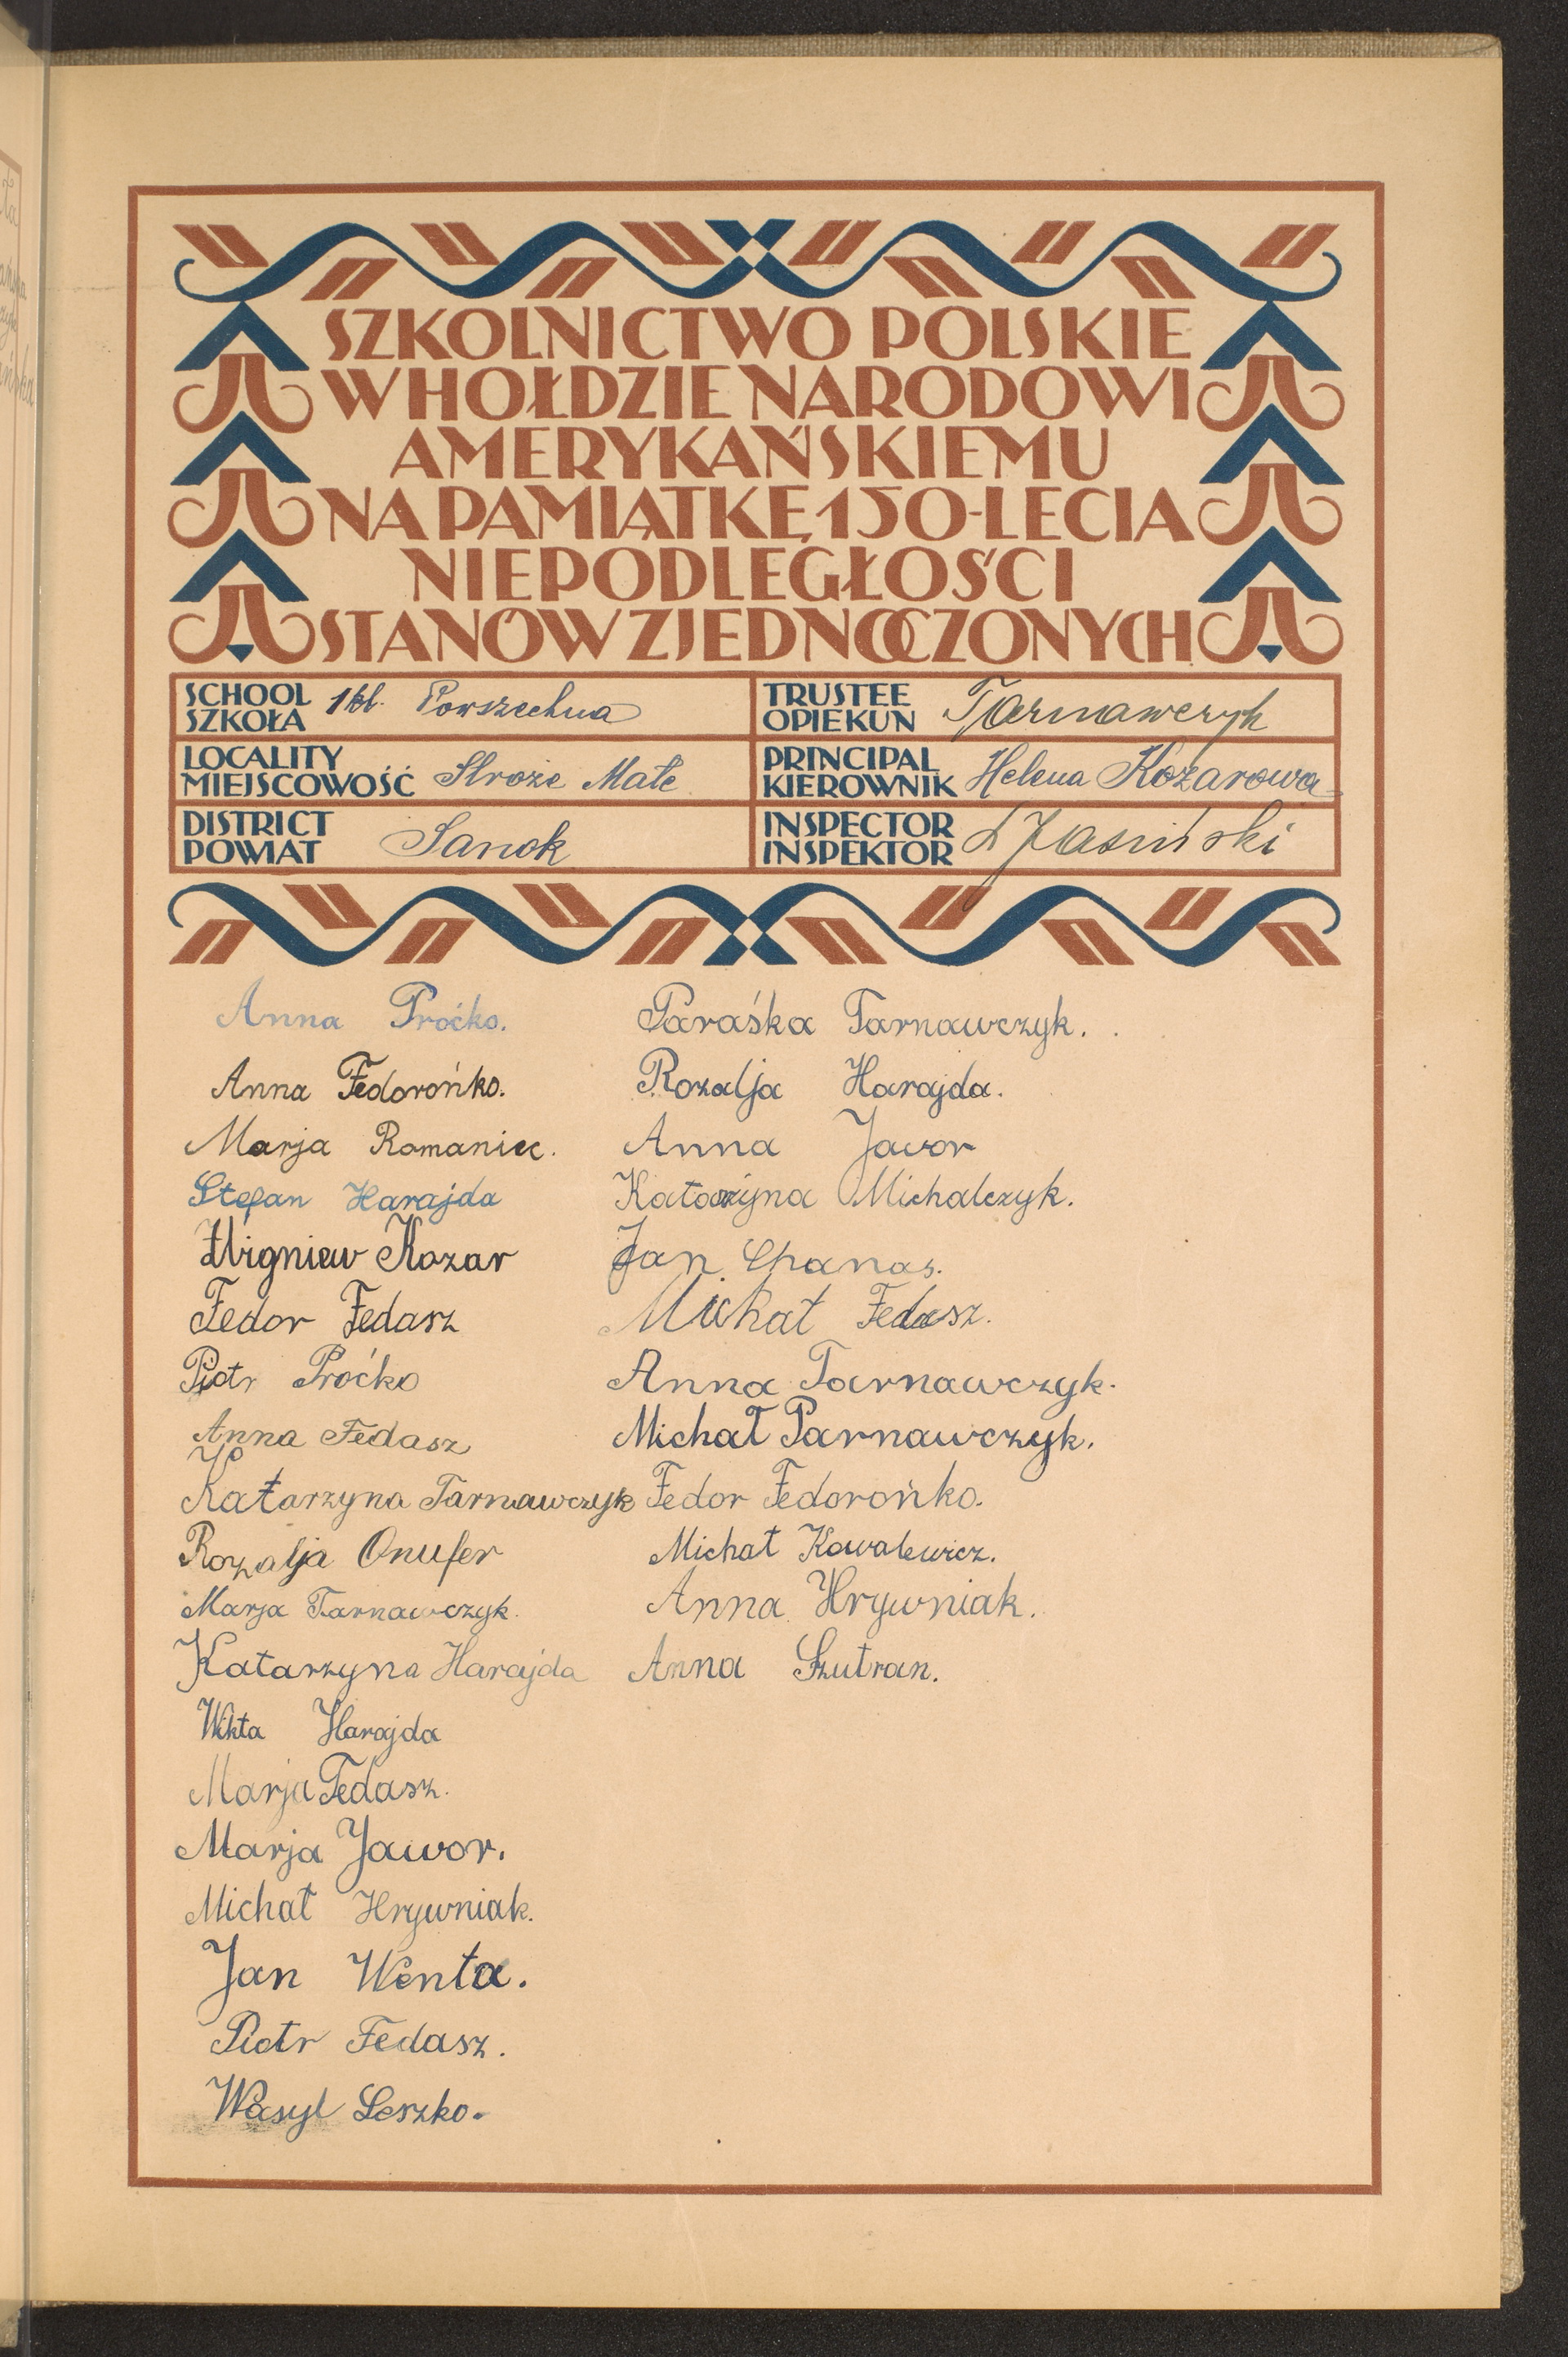 SZKOLNICTWO POLSKIE
W HOŁDZIE NARODOWI
AMERYKAŃSKIEMU
NA PAMIĄTKĘ 150-LECIA
NIEPODLEGŁOŚCI
STANÓW ZJEDNOCZONYCH
SCHOOL
SZKOŁA
1 kl. Powszechna
TRUSTEE
OPIEKUN
Tarnawczyk
LOCALITY
MIEJSCOWOŚĆ
Stroże Małe
PRINCIPAL
KIEROWNIK
Helena Kozarowa
DISTRICT
POWIAT
Sanok
INSPECTOR
INSPEKTOR
Jasiński
Anna Proćko.
Anna Fedorońko.
Marja Romaniec.
Stefan Harajda
Zbigniew Kozar
Fedor Fedasz
Piotr Proćko
Anna Fedasz
Katarzyna Tarnawczyk
Rozalja Onufer
Marja Tarnawczyk.
Katarzyna Harajda
Wikta Harajda
Marja Fedasz.
Marja Jawor.
Michał Hrywniak.
Jan Wenta.
Piotr Fedasz.
Wasyl Leszko.
Paraśka Tarnawczyk.
Rozalja Harajda.
Anna Jawor
Katarzyna Michalczyk.
Jan Chanas.
Michał Fedasz.
Anna Tarnawczyk.
Michał Tarnawczyk.
Fedor Fedorońko.
Michał Kowalewicz.
Anna Hrywniak.
Anna Szutran.